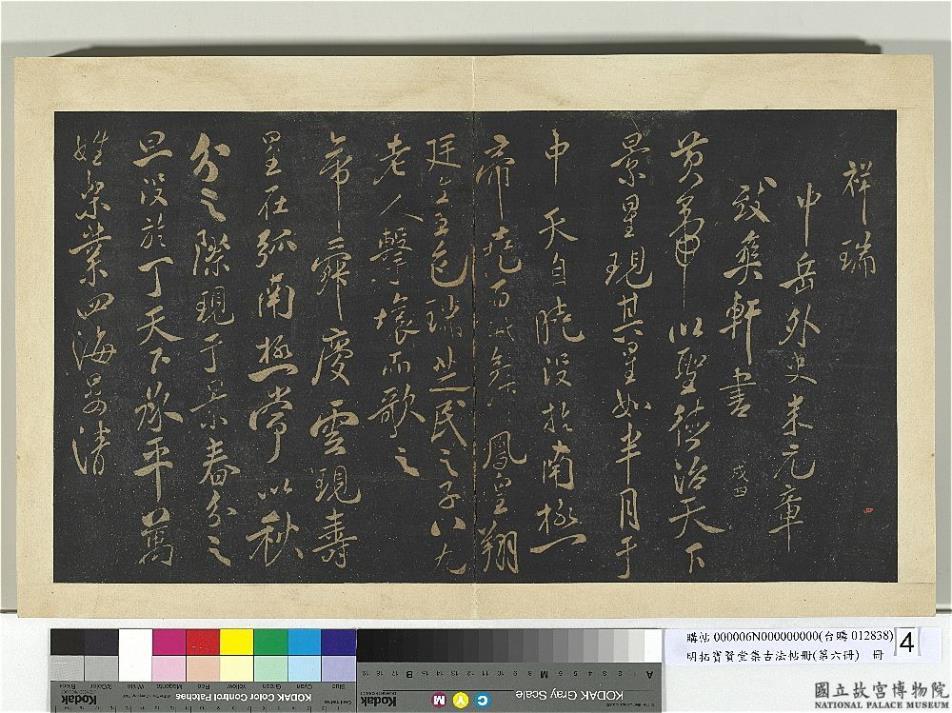 祥瑞
中岳外史米元章
致爽軒書
戍四
黃帝以聖德治天下
景星現其星如半月于
中天自曉沒於南極
帝堯 鳳皇翔
廷 五色瑞 民之子八九
老人擊壤而歌之
帝舜慶雲現壽
星在弧南極常以秋
分之際現于景春分之
旦沒於丁天下承平萬
姓樂業四海晏清
購帖 000006N000000000(台購 012838)
明拓寶賢堂集古法帖冊(第六冊) 冊
4
KODAK Color Control Patches
Kodak
Blue Cyan Green Yellow Red Magenta White Black
KODAK Gray Scale
Kodak
C Y M
A M B
國立故宮博物院
NATIONAL PALACE MUSEUM